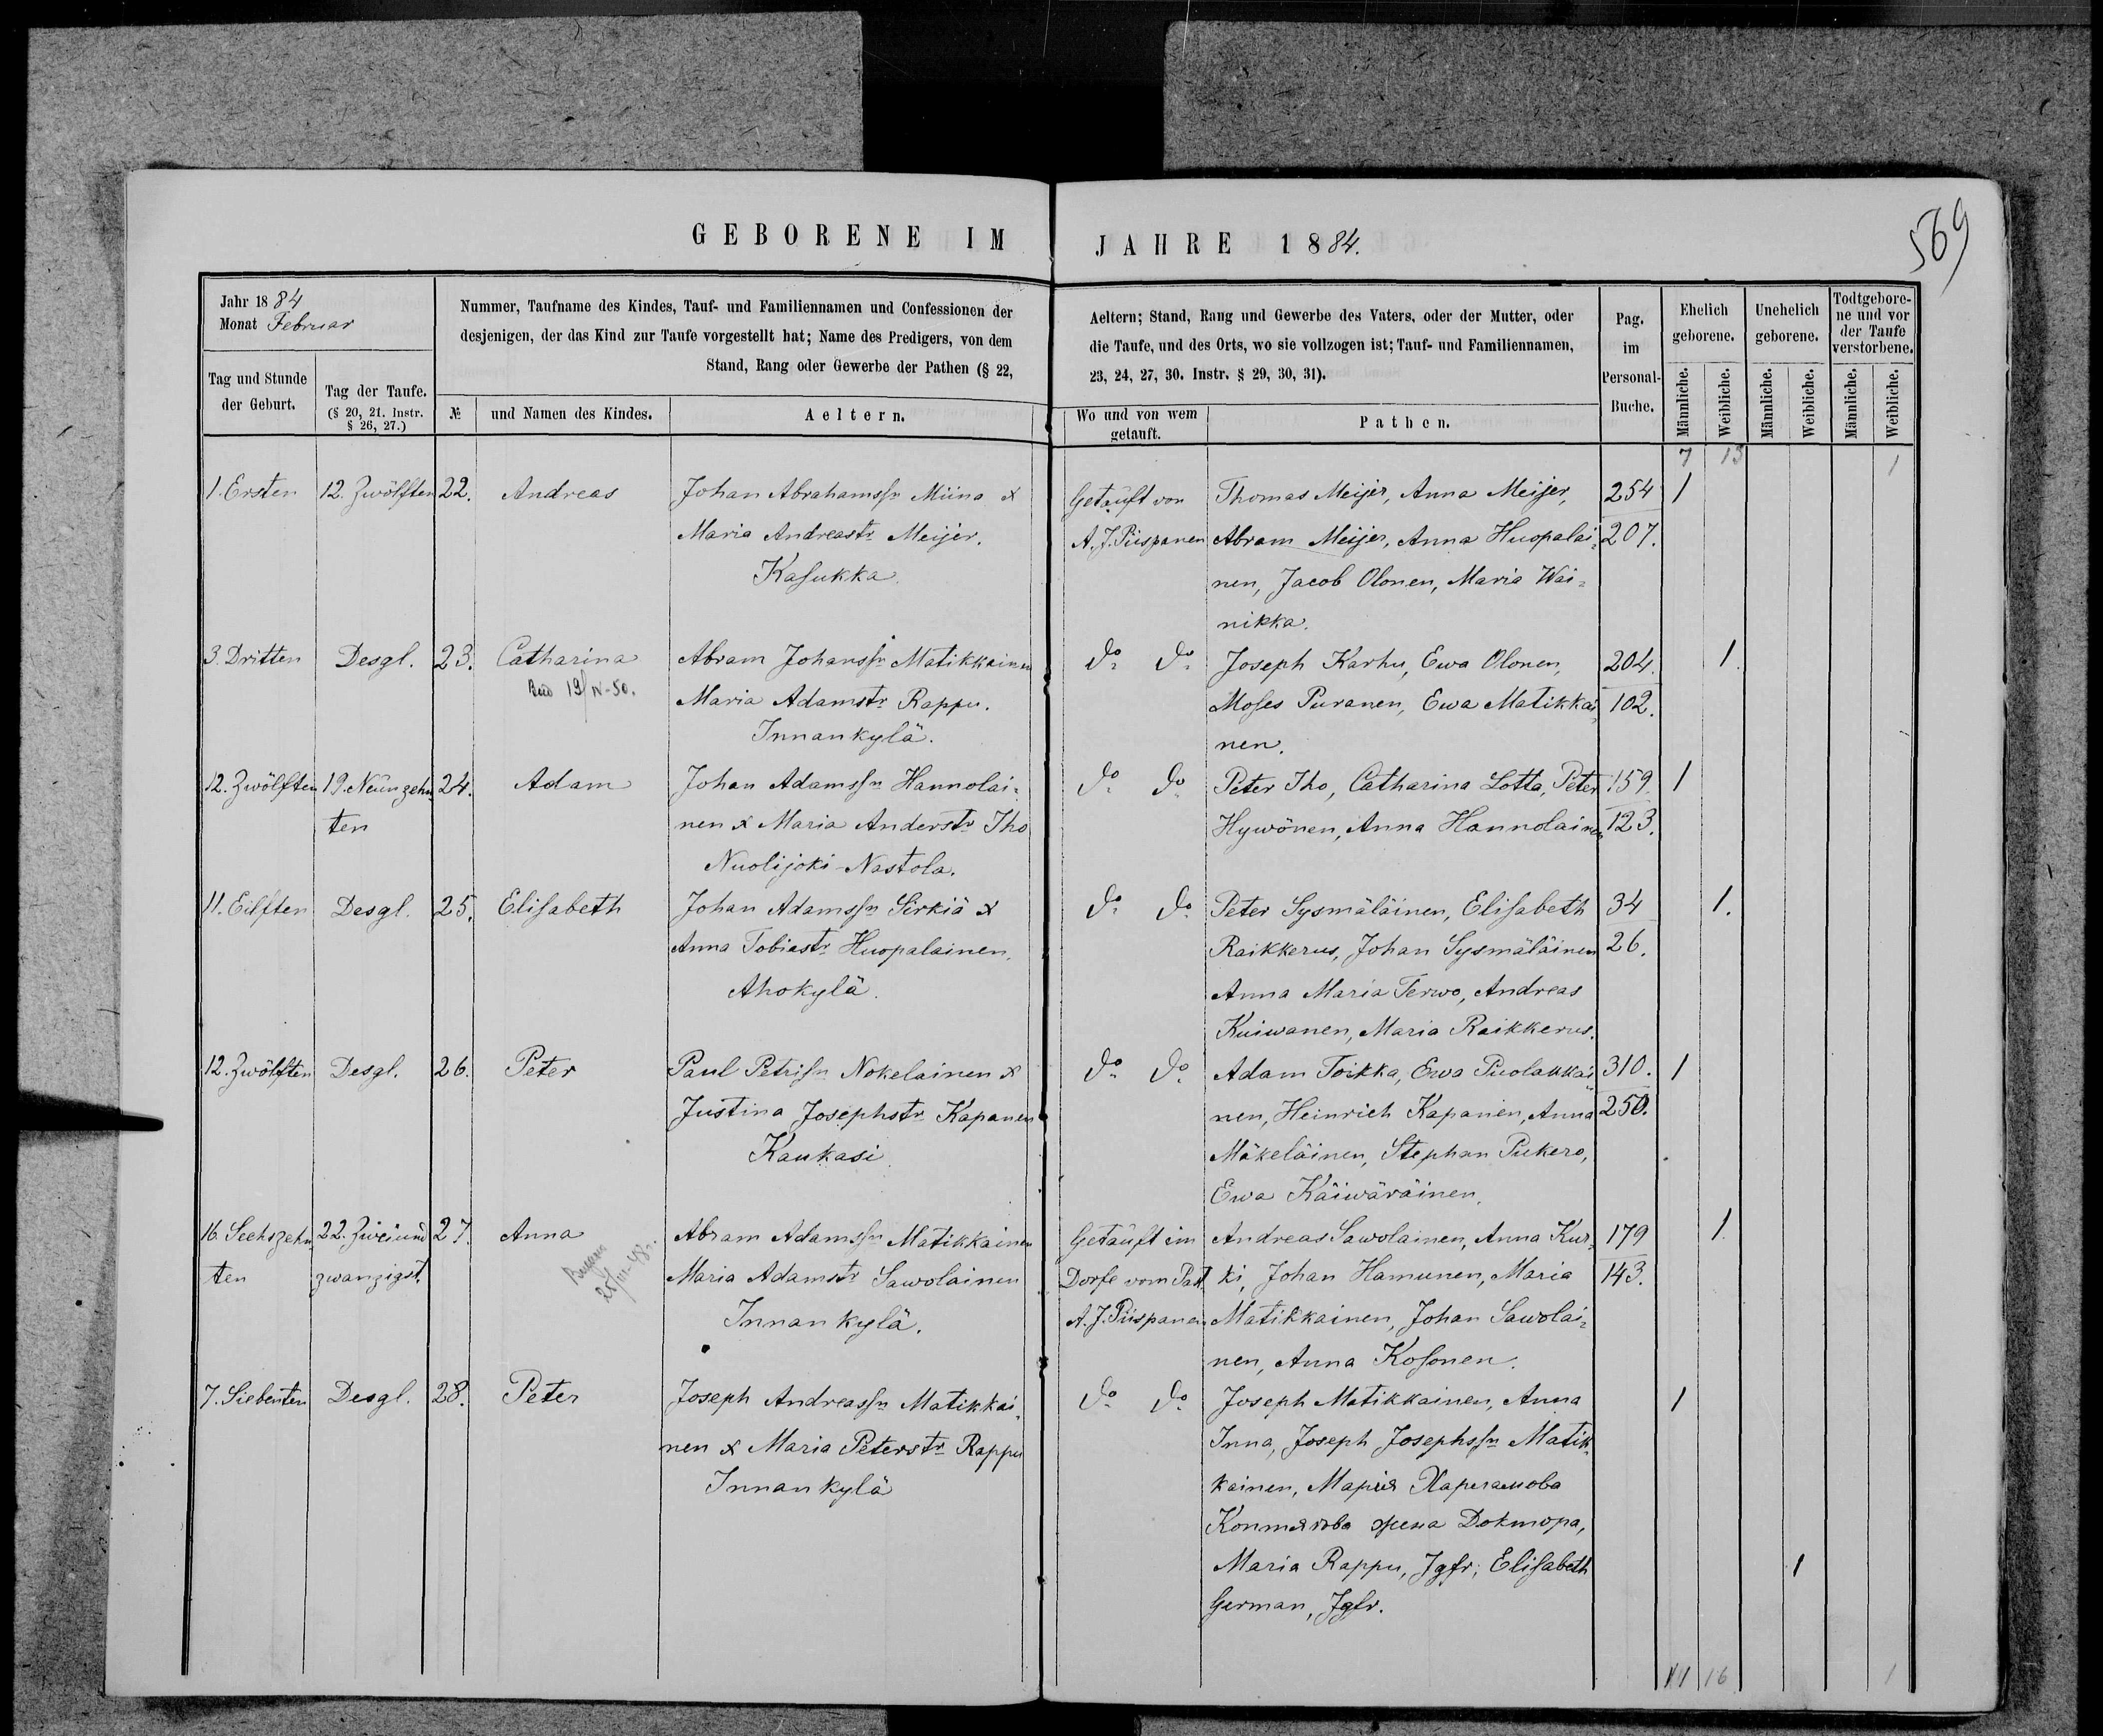 GEBORENE IM JAHRE 1884.
569
Jahr 1884
Monat Februar
Nummer, Taufname des Kindes, Tauf- und Familiennamen und Confessionen der
desjenigen, der das Kind zur Taufe vorgestellt hat; Name des Predigers, von dem
Stand, Rang oder Gewerbe der Pathen (§ 22,
Aeltern; Stand, Rang und Gewerbe des Vaters, oder der Mutter, oder
die Taufe, und des Orts, wo sie vollzogen ist; Tauf- und Familiennamen,
23, 24, 27, 30. Instr. § 29, 30, 31).
Pag.
im
Personal-
Buche.
Ehelich
geborene.
Unehelich
geborene.
Todtgebore-
ne und vor
der Taufe
verstorbene.
Tag und Stunde
der Geburt.
Tag der Taufe.
(§ 20, 21. Instr.
§ 26, 27.)
№
und Namen des Kindes.
Aeltern.
Wo und von wem
getauft.
Pathen.
Männliche.
Weibliche.
Männliche.
Weibliche.
Männliche.
Weibliche.
7 13 1
1. Ersten 12. Zwölften 22. Andreas Johan Abrahamssn Miina x Getauft von Thomas Meijer, Anna Meijer, 254 1
Maria Andreastr Meijer. A. J. Piispanen Abram Meijer, Anna Huopalai= 207.
Kasukka. nen, Jacob Olonen, Maria Wai=
nikka.
3. Dritten Desgl. 23. Catharina Abram Johanssn Matikkainen do do Joseph Karhu, Ewa Olonen, 204. 1.
19/IV-50. Maria Adamstr Rappu. Moses Puranen, Ewa Matikkai= 102.
Innankylä. nen.
12. Zwölften 19. Neunzehn 24. Adam Johan Adamssn Hannolai= do do Peter Iho, Catharina Lotta, Peter 159. 1
ten nen x Maria Anderstr Iho Hywönen, Anna Hannolainen 123.
Nuolijoki-Nastola.
11. Eilften Desgl. 25. Elisabeth Johan Adamssn Sirkiä x do do Peter Sysmäläinen, Elisabeth 34 1.
Anna Tobiastr Huopalainen, Raikkerus, Johan Sysmäläinen 26.
Ahokylä. Anna Maria Terwo, Andreas
Kuiwanen, Maria Raikkerus.
12. Zwölften Desgl. 26. Peter Paul Petrisn Nokelainen x do do Adam Toikka, Ewa Puolakkai= 310. 1
Justina Josephstr Kapanen nen, Heinrich Kapanen, Anna 250.
Kaukasi Mäkeläinen, Stephan Pukero,
Ewa Käiwäräinen.
16. Sechszehn 22. Zwei und 27. Anna Abram Adamssn Matikkainen Getauft im Andreas Sawolainen, Anna Kur= 179 1.
ten zwanzigst. Maria Adamstr Sawolainen Dorfe vom Past. ki, Johan Hamunen, Maria 143.
Innankylä. A. J. Piispanen Matikkainen, Johan Sawolai=
nen, Anna Kosonen.
7. Siebenten Desgl. 28. Peter Joseph Andreassn Matikkai= do do Joseph Matikkainen, Anna 1
nen x Maria Peterstr Rappu Inna, Joseph Josephssn Matik=
Innankylä kainen, Марія
жена Доктора,
Maria Rappu, Jgfr; Elisabeth 1
German, Jgfr.
11 16 1